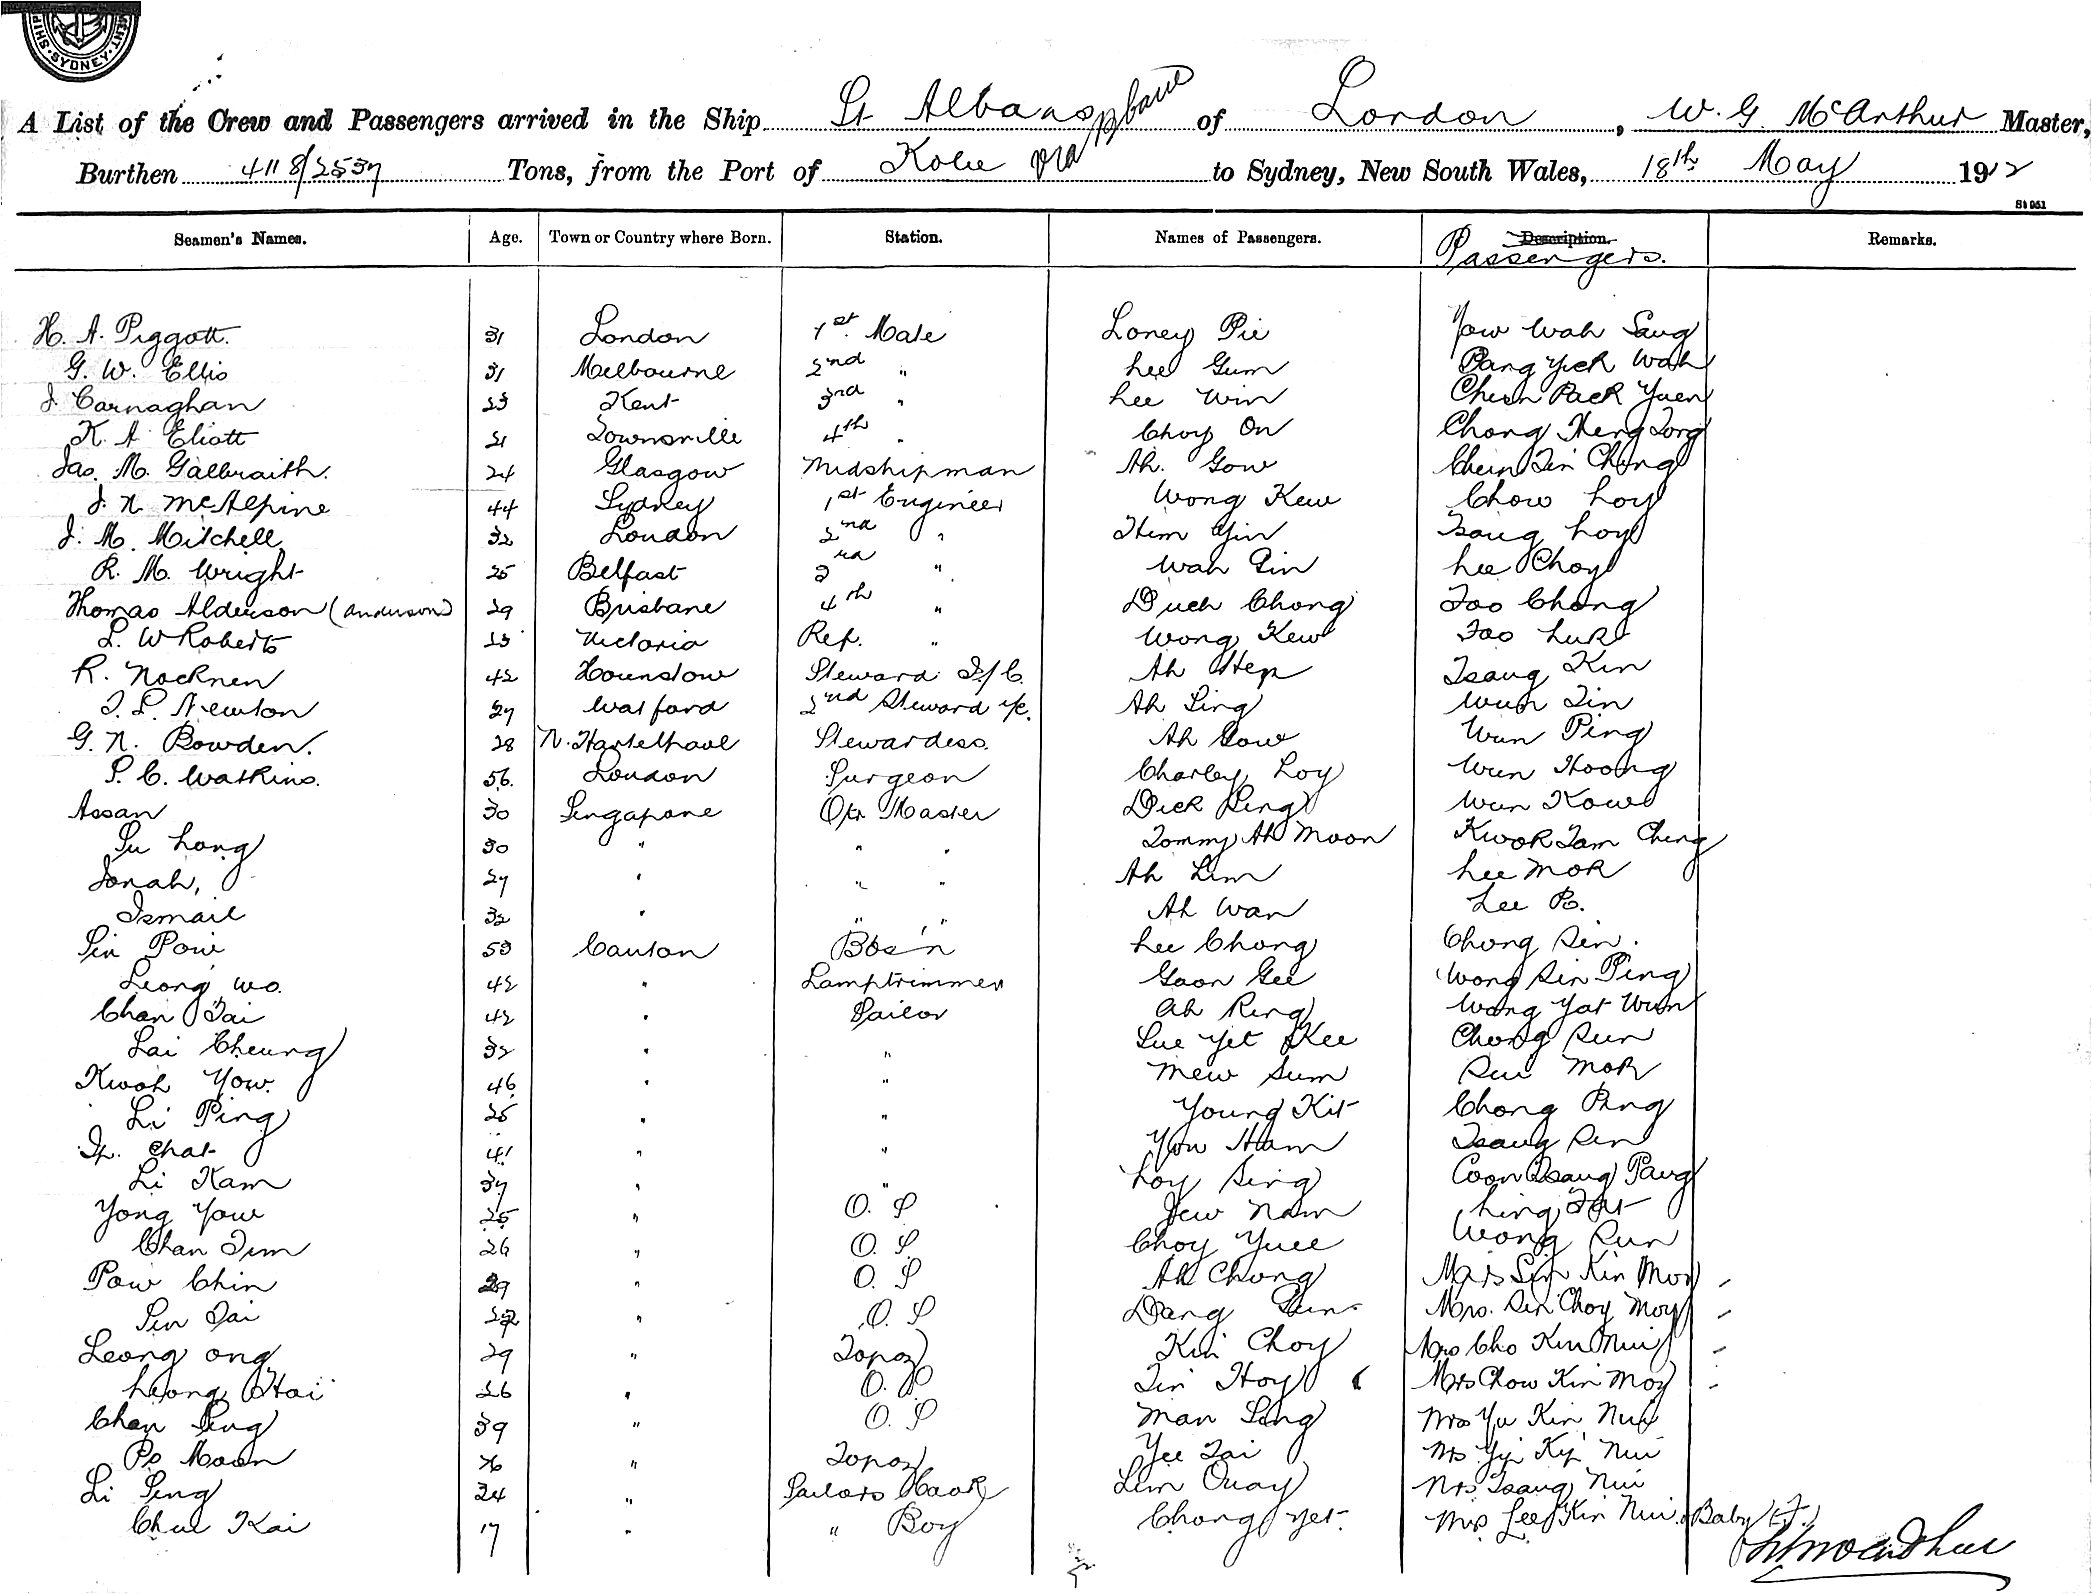 SHIP · SYDNEY ·
A List of the Crew and Passengers arrived in the Ship St Albans of London, W. G. McArthur Master,
Burthen 4118/2537 Tons, from the Port of Kobe via to Sydney, New South Wales, 18th May 1912
Seamen's Names. Age. Town or Country where Born. Station. Names of Passengers. Description. Passengers. Remarks.
H. A. Piggott. 31 London 1st Mate Loney Pie Yow Wah Sang
G. W. Ellis 31 Melbourne 2nd " Lee Gum Pang Yick Wah
J Carnaghan 23 Kent 3rd " Lee Win Chun Pack Yuen
K. A Eliott 21 Townsville 4th " Choy On Chong Heng Tong
Jas. M. Galbraith. 24 Glasgow Midshipman Ah. Gow Chun Tin Chong
J. N. McAlpine 44 Sydney 1st Engineer Wong Kew Chow Loy
J. M. Mitchell 32 London 2nd " Hem Yin Tsang Loy
R. M. Wright 25 Belfast 3rd " Wah Gin Lee Choy
Thomas Alderson (Anderson) 29 Brisbane 4th " Duck Chong Tao Chong
L. W Roberts 23 Victoria Ref. " Wong Kew Tao Luk
R. Nocknen 42 Hounslow Steward I/C. Ah Hep Tsang Kin
T. L. Newton 27 Watford 2nd Steward I/C. Ah Sing Wun Tin
G. N. Bowden. 28 N. Hartelpool Stewardess. Ah Gow Wun Ping
S. C. Watkins. 56. London Surgeon Charley Loy Wun Hoong
Assan 30 Singapore Qtr Master Dick Sing Wun Kow
Su Long 30 " " " Tommy Ah Moon Kwok Tam Ching
Jonah, 27 " " " Ah Lim Lee Mok
Ismail 32 " " " Ah Wan Lee Po.
Sin Pow 53 Canton Bos'n Lee Chong Chong Sin.
Leong Wo. 42 " Lamptrimmer Goon Gee Wong Sin Ping
Chan Tai 42 " Sailor Ah King Wong Yat Wun
Lai Cheung 32 " " Sue Yet Kee Chong Sun
Kwok Yow. 46 " " Mew Sum Sui Mok
Li Ping 25 " " Young Kit Chong Pang
Ip. Chat 41 " " You Ham Tsang Sin
Li Kam 37 " " Loy Sing Coon Tsang Pang
Yong Yow 25 " O. S Jew Nam Ling Fat
Chan Tim 26 " O. S. Choy Yuee Wong Sun
Pow Chin 29 " O. S Ah Chong Mrs Sin Kin Moy
Sin Tai " O. S Dang Sun Mrs. Sin Choy Moy
Leong Ong 29 " Topaz Kin Choy Mrs Cho Kin Nui
Leong Hoi 26 " O. S Tin Hoy Mrs Chow Kin Moy
Chan Sing 39 " O. S Man Sing Mrs Yu Kin Nui
Po Moon " Topaz Yee Tai Mrs Yip Nui
Li Sing 24 " Sailors Cook Lim Quay Mrs Tsang Nui
Chui Kai 17 " " Boy Chong Yet. Mrs Lee Kin Nui & Baby (F.)